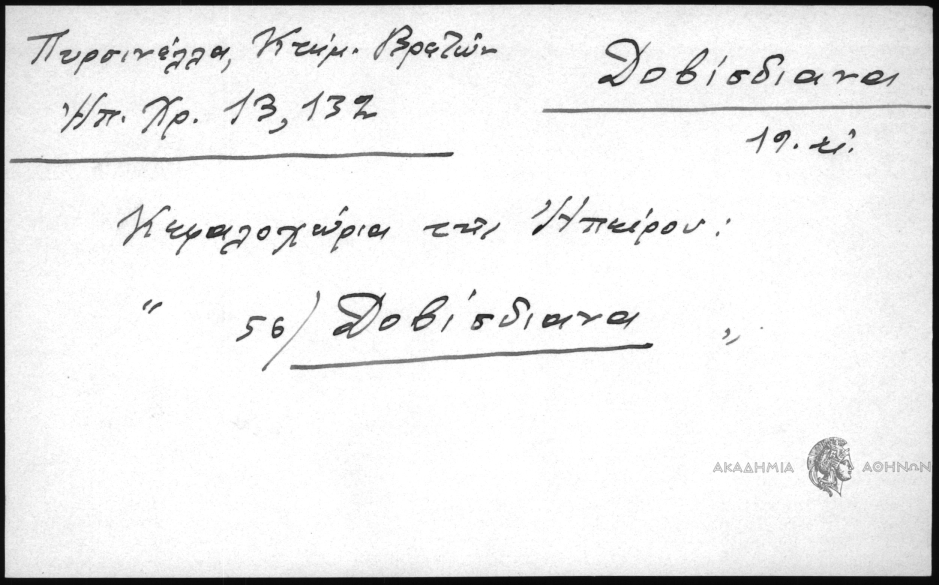 Πυρσινέλλα, Κτημ. Βρετῶν
Ἠπ. Χρ. 13, 132
Δοβίσδιανα
19. αἰ.
Κεφαλοχώρια τῆς Ἠπείρου:
" 56) Δοβίσδιανα "
ΑΚΑΔΗΜΙΑ ΑΘΗΝΩΝ